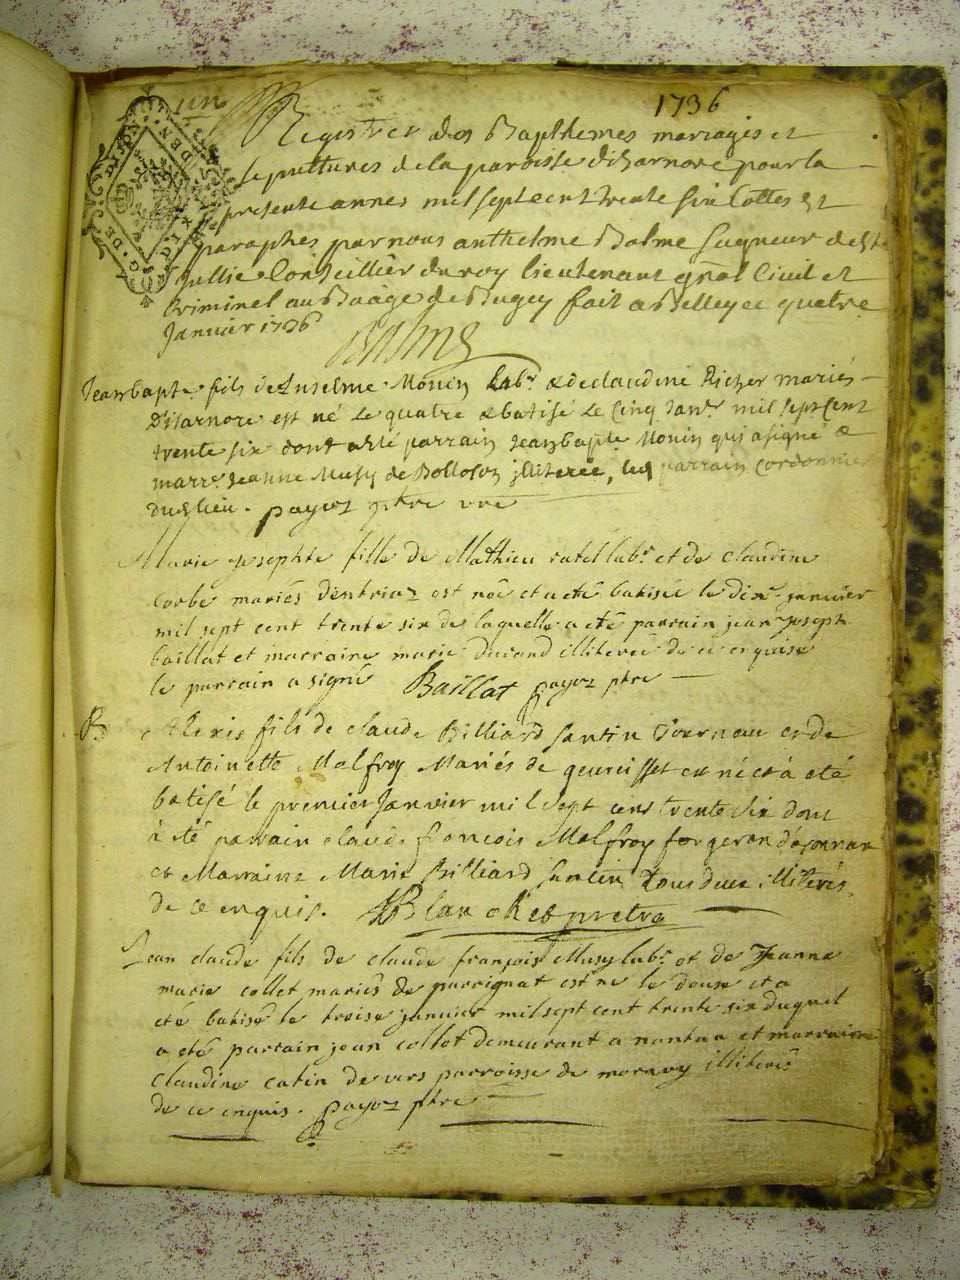 un
1736
Registres des Bapthemes mariages et
sepultures de la paroisse disarnore pour la
presente annes mil sept cent trente six Cottes et
paraphes par nous anthelme Balme seigneur de st
jullie Conseillier du roy lieutenant gnal Civil et
Criminel au Baage de Bugey fait a Belley ce quatre
Janvier 1736
Balme
Jean bapte fils de anselme Monin labr & de claudine Richer mariés
D'isarnore est né le quatre & batisé le cinq janr mil sept cent
trente six dont a été parrain jean bapte Monin qui a signé &
marre jeanne Musy de Bollozon illiterée, led parrain cordonnier
dud lieu. payoz ptre vre
Marie josephte fille de Mathieu ratel labr et de claudine
Corbe mariés d'intriaz est née et a eté batisée le dixe janvier
mil sept cent trente six de laquelle a eté parrain jean joseph
baillat et marraine marie durand illiterée de ce enquise
le parrain a signé Baillat payoz ptre
B Alexis fils de claude Billiard santin Tournau et de
Antoinette Malfroy Mariés de geureisset est né et à eté
batisé le premier janvier mil sept cens trente six dont
à eté parrain claude françois Malfroy forgeron d'ajonnax
et Marraine Marie Billiard santin tous deux illiterés
de ce enquis. Blanchet pretre
Jean claude fils de claude françois Musy labr et de Jeanne
marie collet mariés de perrignat est né le douse et a
eté batisé le treise janvier mil sept cent trente six duquel
a eté parrain jean collet demeurant a nantua et marraine
claudine catin de vers parroisse de mornay illiterés
de ce enquis. payoz ptre